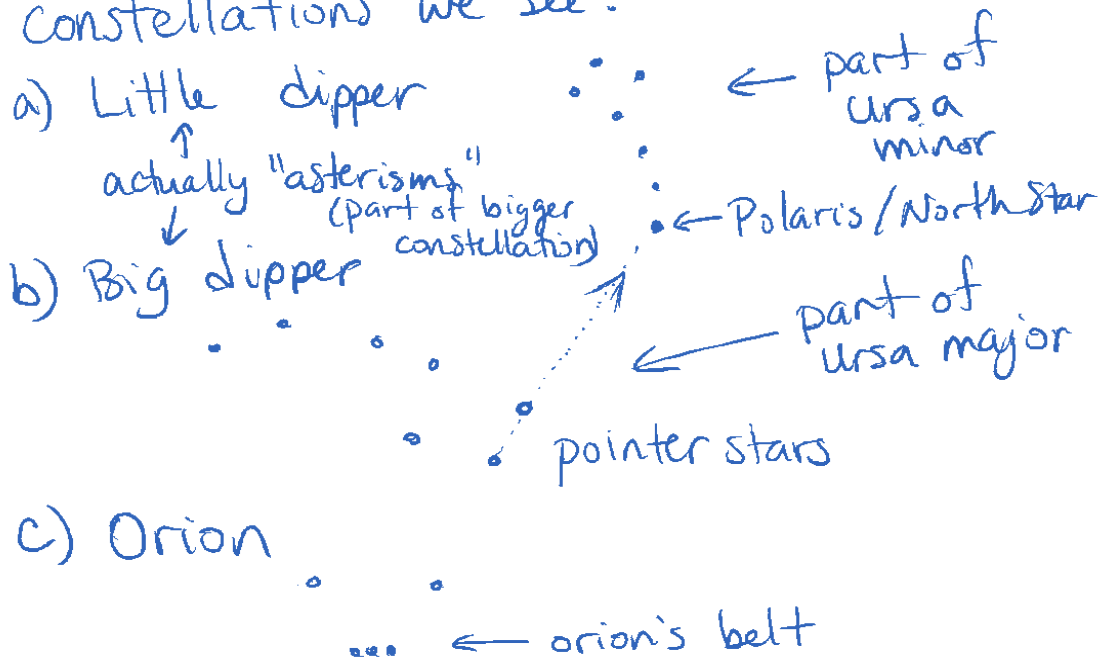 Constellations we see:
a) Little dipper
← part of
ursa
minor
actually "asterisms"
(part of bigger
constellation)
← Polaris/North Star
b) Big dipper
part of
ursa major
pointer stars
c) Orion
← orion's belt